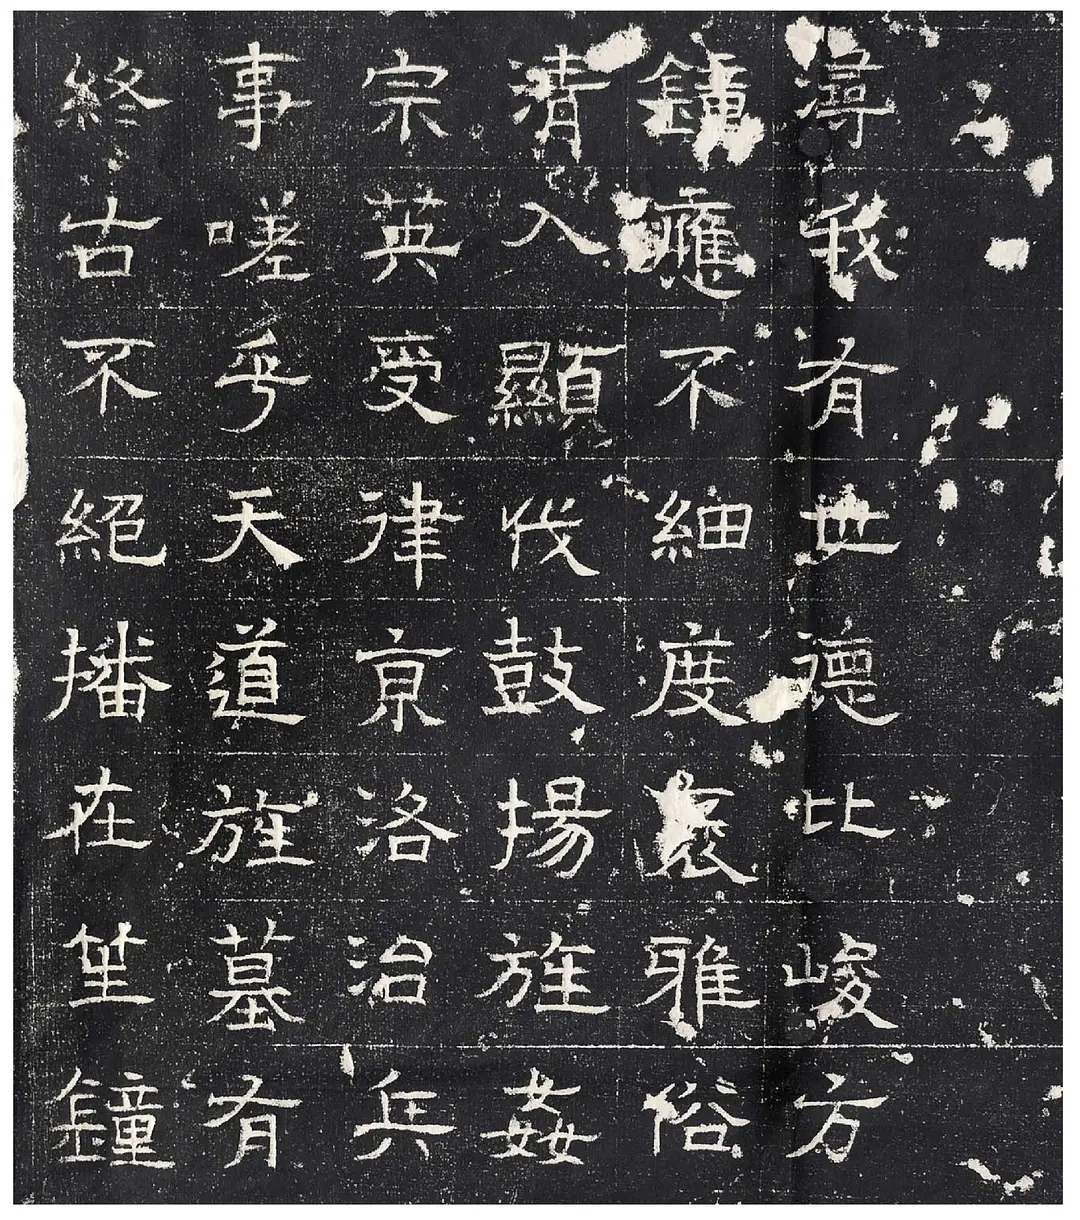 潯我有世德比峻方
鐘應不細度褱雅俗
清入顯伐鼓揚旌姦
宗英受律京洛治兵
事嗟乎天道旌墓有
終古不絕播在笙鐘